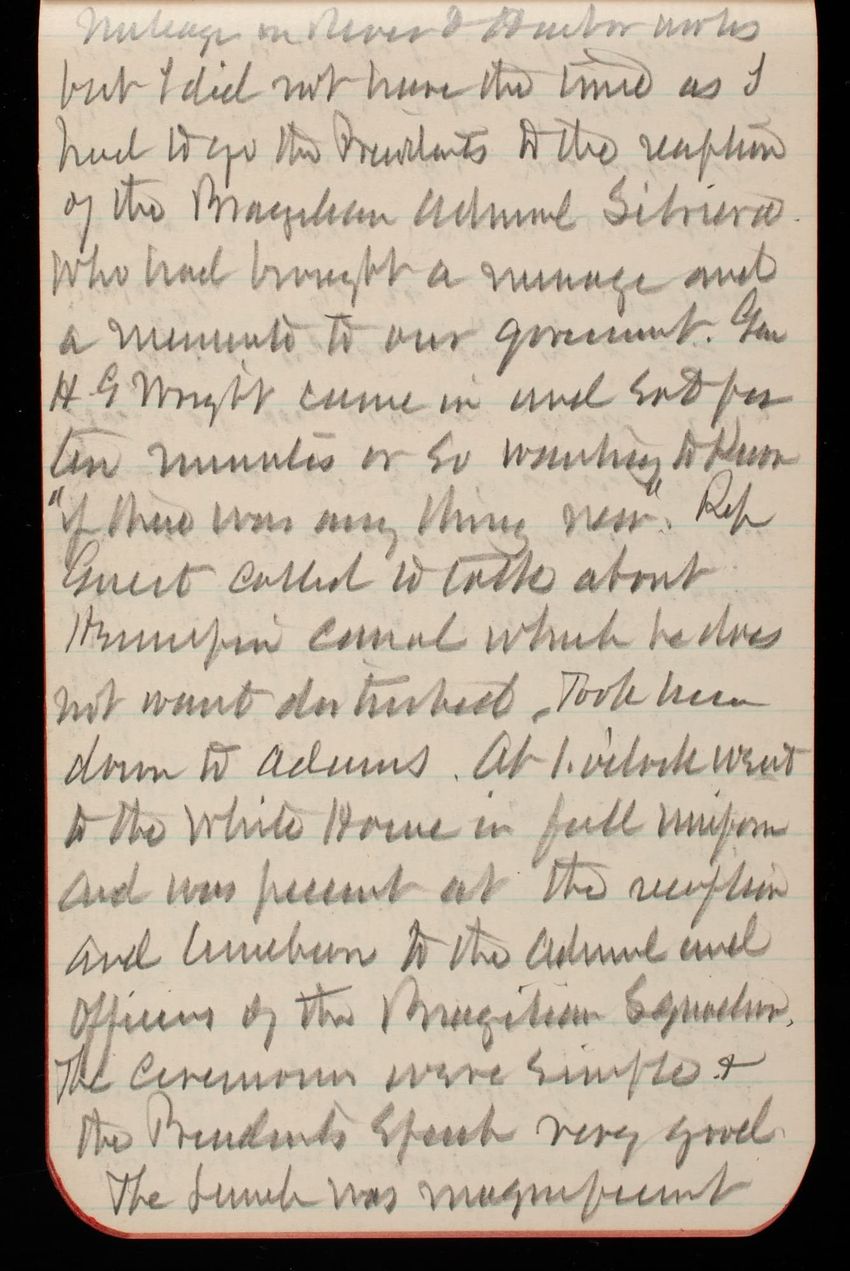 Mileage on River & Harbor works
but I did not have the time as I
had to go the Presidents to the reception
of the Brazilian Admiral Silviera
who had brought a message and
a memento to our government. Gen
H G Wright came in and sat for
ten minutes or so wanting to know
"if there was any thing new". Rep
Guest called to talk about
Hennepin Canal which he does
not want disturbed. Took him
down to Adams. At 1. o'clock went
to the White House in full uniform
and was present at the reception
and luncheon to the Admiral and
Officers of the Brazilian Squadron.
The ceremonies were simple &
the Presidents Speech very good
The Lunch was magnificent